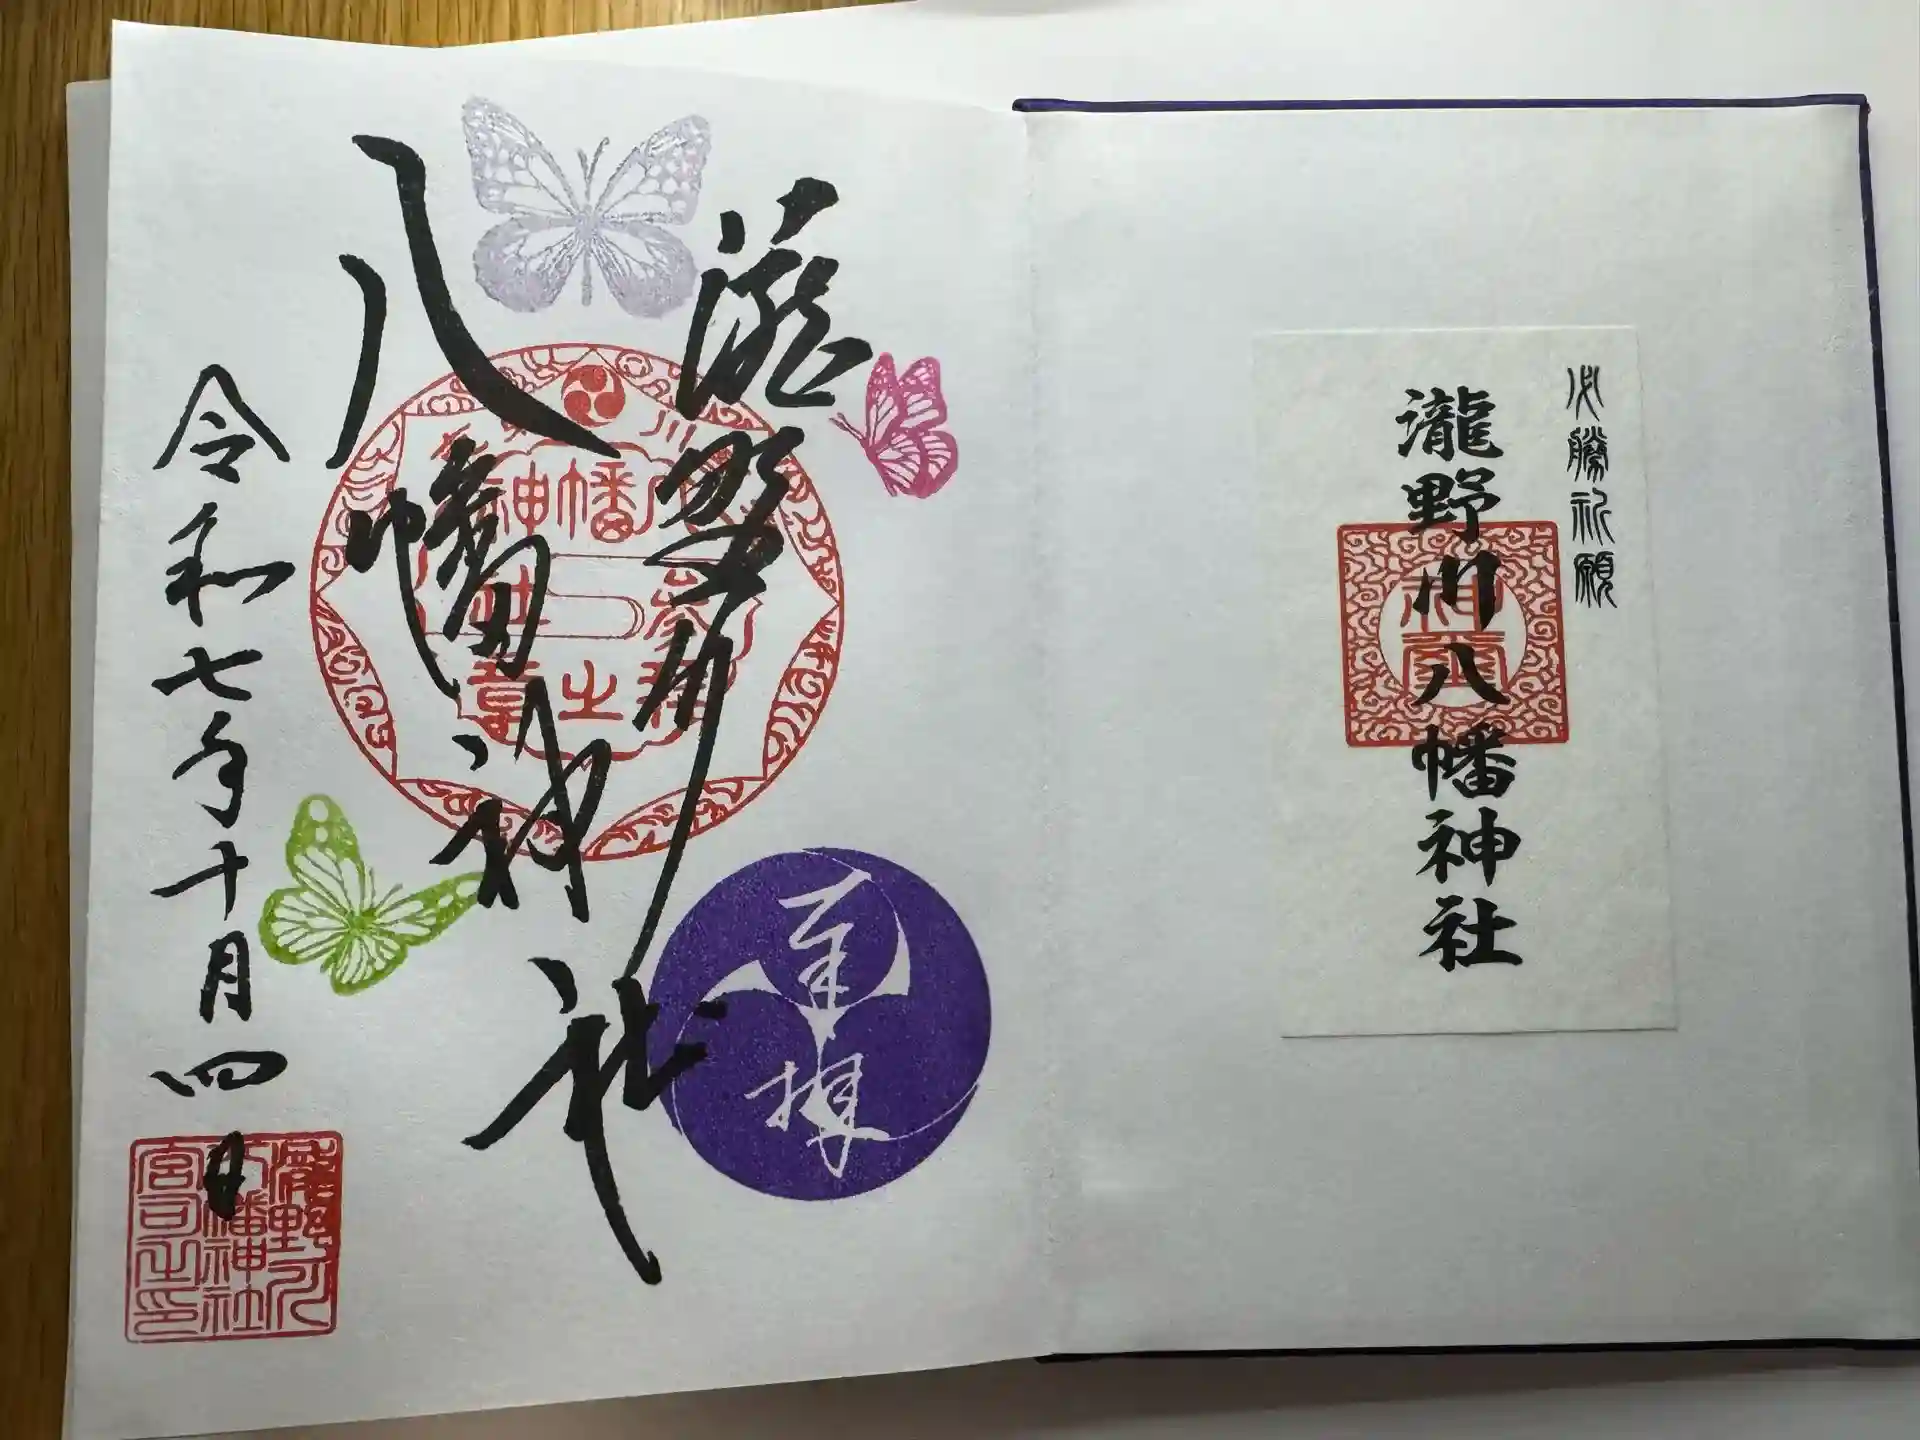 必勝祈願
瀧野川八幡神社
瀧野川
八幡神社
奉拝
令和七年十月四日
瀧野川
八幡神社
宮司之印